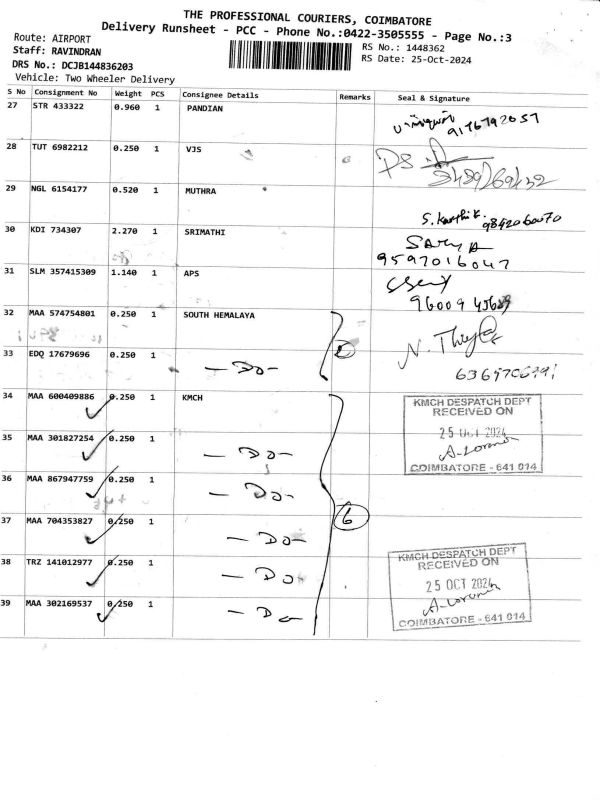 THE PROFESSIONAL COURIERS, COIMBATORE
Delivery Runsheet - PCC - Phone No.:0422-3505555 - Page No.:3
Route: AIRPORT
RS No.: 1448362
Staff: RAVINDRAN
RS Date: 25-Oct-2024
DRS No.: DCJB144836203
Vehicle: Two Wheeler Delivery
S No Consignment No Weight PCS Consignee Details Remarks Seal & Signature
27 STR 433322 0.960 1 PANDIAN
9176792057
28 TUT 6982212 0.250 1 VJS
29 NGL 6154177 0.520 1 MUTHRA
S. Karthik. 9842060070
30 KDI 734307 2.270 1 SRIMATHI
9597016047
31 SLM 357415309 1.140 1 APS
32 MAA 574754801 0.250 1 SOUTH HEMALAYA
33 EDQ 17679696 0.250 1 - Do -
34 MAA 600409886 0.250 1 KMCH
KMCH DESPATCH DEPT
RECEIVED ON
25 OCT 2024
COIMBATORE - 641 014
35 MAA 301827254 0.250 1 - Do -
36 MAA 867947759 0.250 1 - Do -
37 MAA 704353827 0.250 1 - Do -
6
38 TRZ 141012977 0.250 1 - Do -
39 MAA 302169537 0.250 1 - Do
KMCH DESPATCH DEPT
RECEIVED ON
25 OCT 2024
COIMBATORE - 641 014